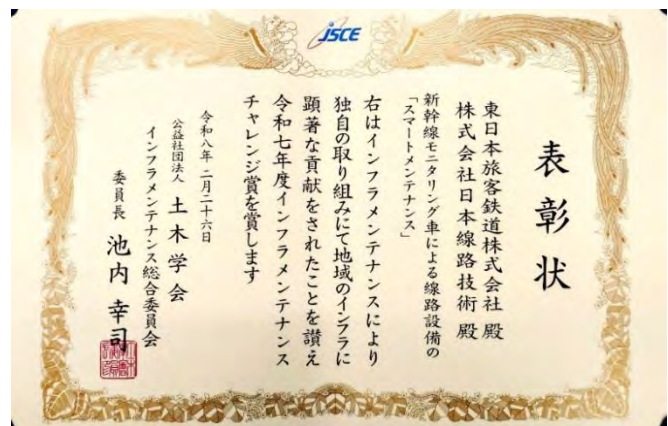 JSCE
表彰状
東日本旅客鉄道株式会社 殿
株式会社日本線路技術 殿
新幹線モニタリング車による線路設備の
「スマートメンテナンス」
右はインフラメンテナンスにより
独自の取り組みにて地域のインフラに
顕著な貢献をされたことを讃え
令和七年度インフラメンテナンス
チャレンジ賞を賞します
令和八年 二月二十六日
公益社団法人 土木学会
インフラメンテナンス総合委員会
委員長 池内 幸司